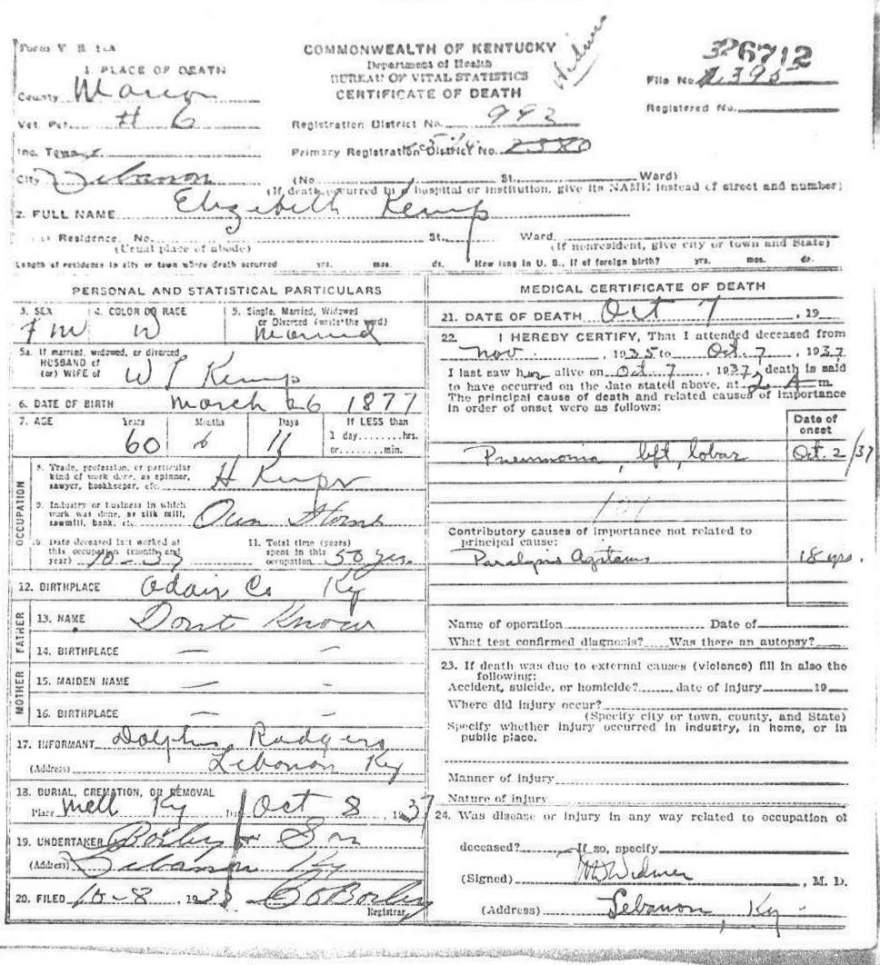 Form V. S. 1-A
COMMONWEALTH OF KENTUCKY
Department of Health
BUREAU OF VITAL STATISTICS
CERTIFICATE OF DEATH
Widmer
326712
File No.
Registered No.
1. PLACE OF DEATH
County Marion
Vot. Pct. # 6
Registration District No. 993
Inc. Town
Primary Registration District No. 2380
City Lebanon (No. St. Ward)
(If death occurred in a hospital or institution, give its NAME instead of street and number)
2. FULL NAME Elizabeth Kemp
Residence. No. St., Ward.
(Usual place of abode) (If nonresident, give city or town and State)
Length of residence in city or town where death occurred yrs. mos. ds. How long in U. S., if of foreign birth? yrs. mos. ds.
PERSONAL AND STATISTICAL PARTICULARS
3. SEX 4. COLOR OR RACE 5. Single, Married, Widowed
or Divorced (write the word)
Fm W Married
5a. If married, widowed, or divorced
HUSBAND of
(or) WIFE of W T Kemp
6. DATE OF BIRTH March 26 1877
7. AGE Years Months Days If LESS than
60 6 11 1 day........hrs.
or........min.
OCCUPATION
8. Trade, profession, or particular
kind of work done, as spinner,
sawyer, bookkeeper, etc. H Keeper
9. Industry or business in which
work was done, as silk mill,
sawmill, bank, etc. Own Home
10. Date deceased last worked at
this occupation (month and
year) 10-37
11. Total time (years)
spent in this
occupation 50 yrs.
12. BIRTHPLACE Odair Co Ky
FATHER
13. NAME Dont Know
14. BIRTHPLACE — —
MOTHER
15. MAIDEN NAME — —
16. BIRTHPLACE — —
17. INFORMANT Dolphus Rodgers
(Address) Lebanon Ky
18. BURIAL, CREMATION, OR REMOVAL
Place Mell Ky Date Oct 8 1937
19. UNDERTAKER Bosley & Son
(Address) Lebanon Ky
20. FILED 10-8, 193
Registrar
MEDICAL CERTIFICATE OF DEATH
21. DATE OF DEATH Oct 7, 19
22. I HEREBY CERTIFY, That I attended deceased from
Nov., 1935 to Oct. 7, 1937
I last saw her alive on Oct. 7, 1937, death is said
to have occurred on the date stated above, at 2 A m.
The principal cause of death and related causes of importance
in order of onset were as follows:
Date of
onset
Pneumonia, left, lobar Oct. 2/37
Contributory causes of importance not related to
principal cause:
Paralysis Agitans 18 yrs.
Name of operation Date of
What test confirmed diagnosis? Was there an autopsy?
23. If death was due to external causes (violence) fill in also the
following:
Accident, suicide, or homicide? date of injury 19
Where did injury occur?
(Specify city or town, county, and State)
Specify whether injury occurred in industry, in home, or in
public place.
Manner of injury
Nature of injury
24. Was disease or injury in any way related to occupation of
deceased? If so, specify
(Signed) Widmer, M. D.
(Address) Lebanon, Ky.